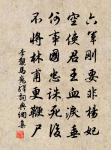 六軍剛要非楊妃
空使君王血淚垂
何事國忠誅死後
不將林甫更鞭尸
李覯馬嵬驛詞